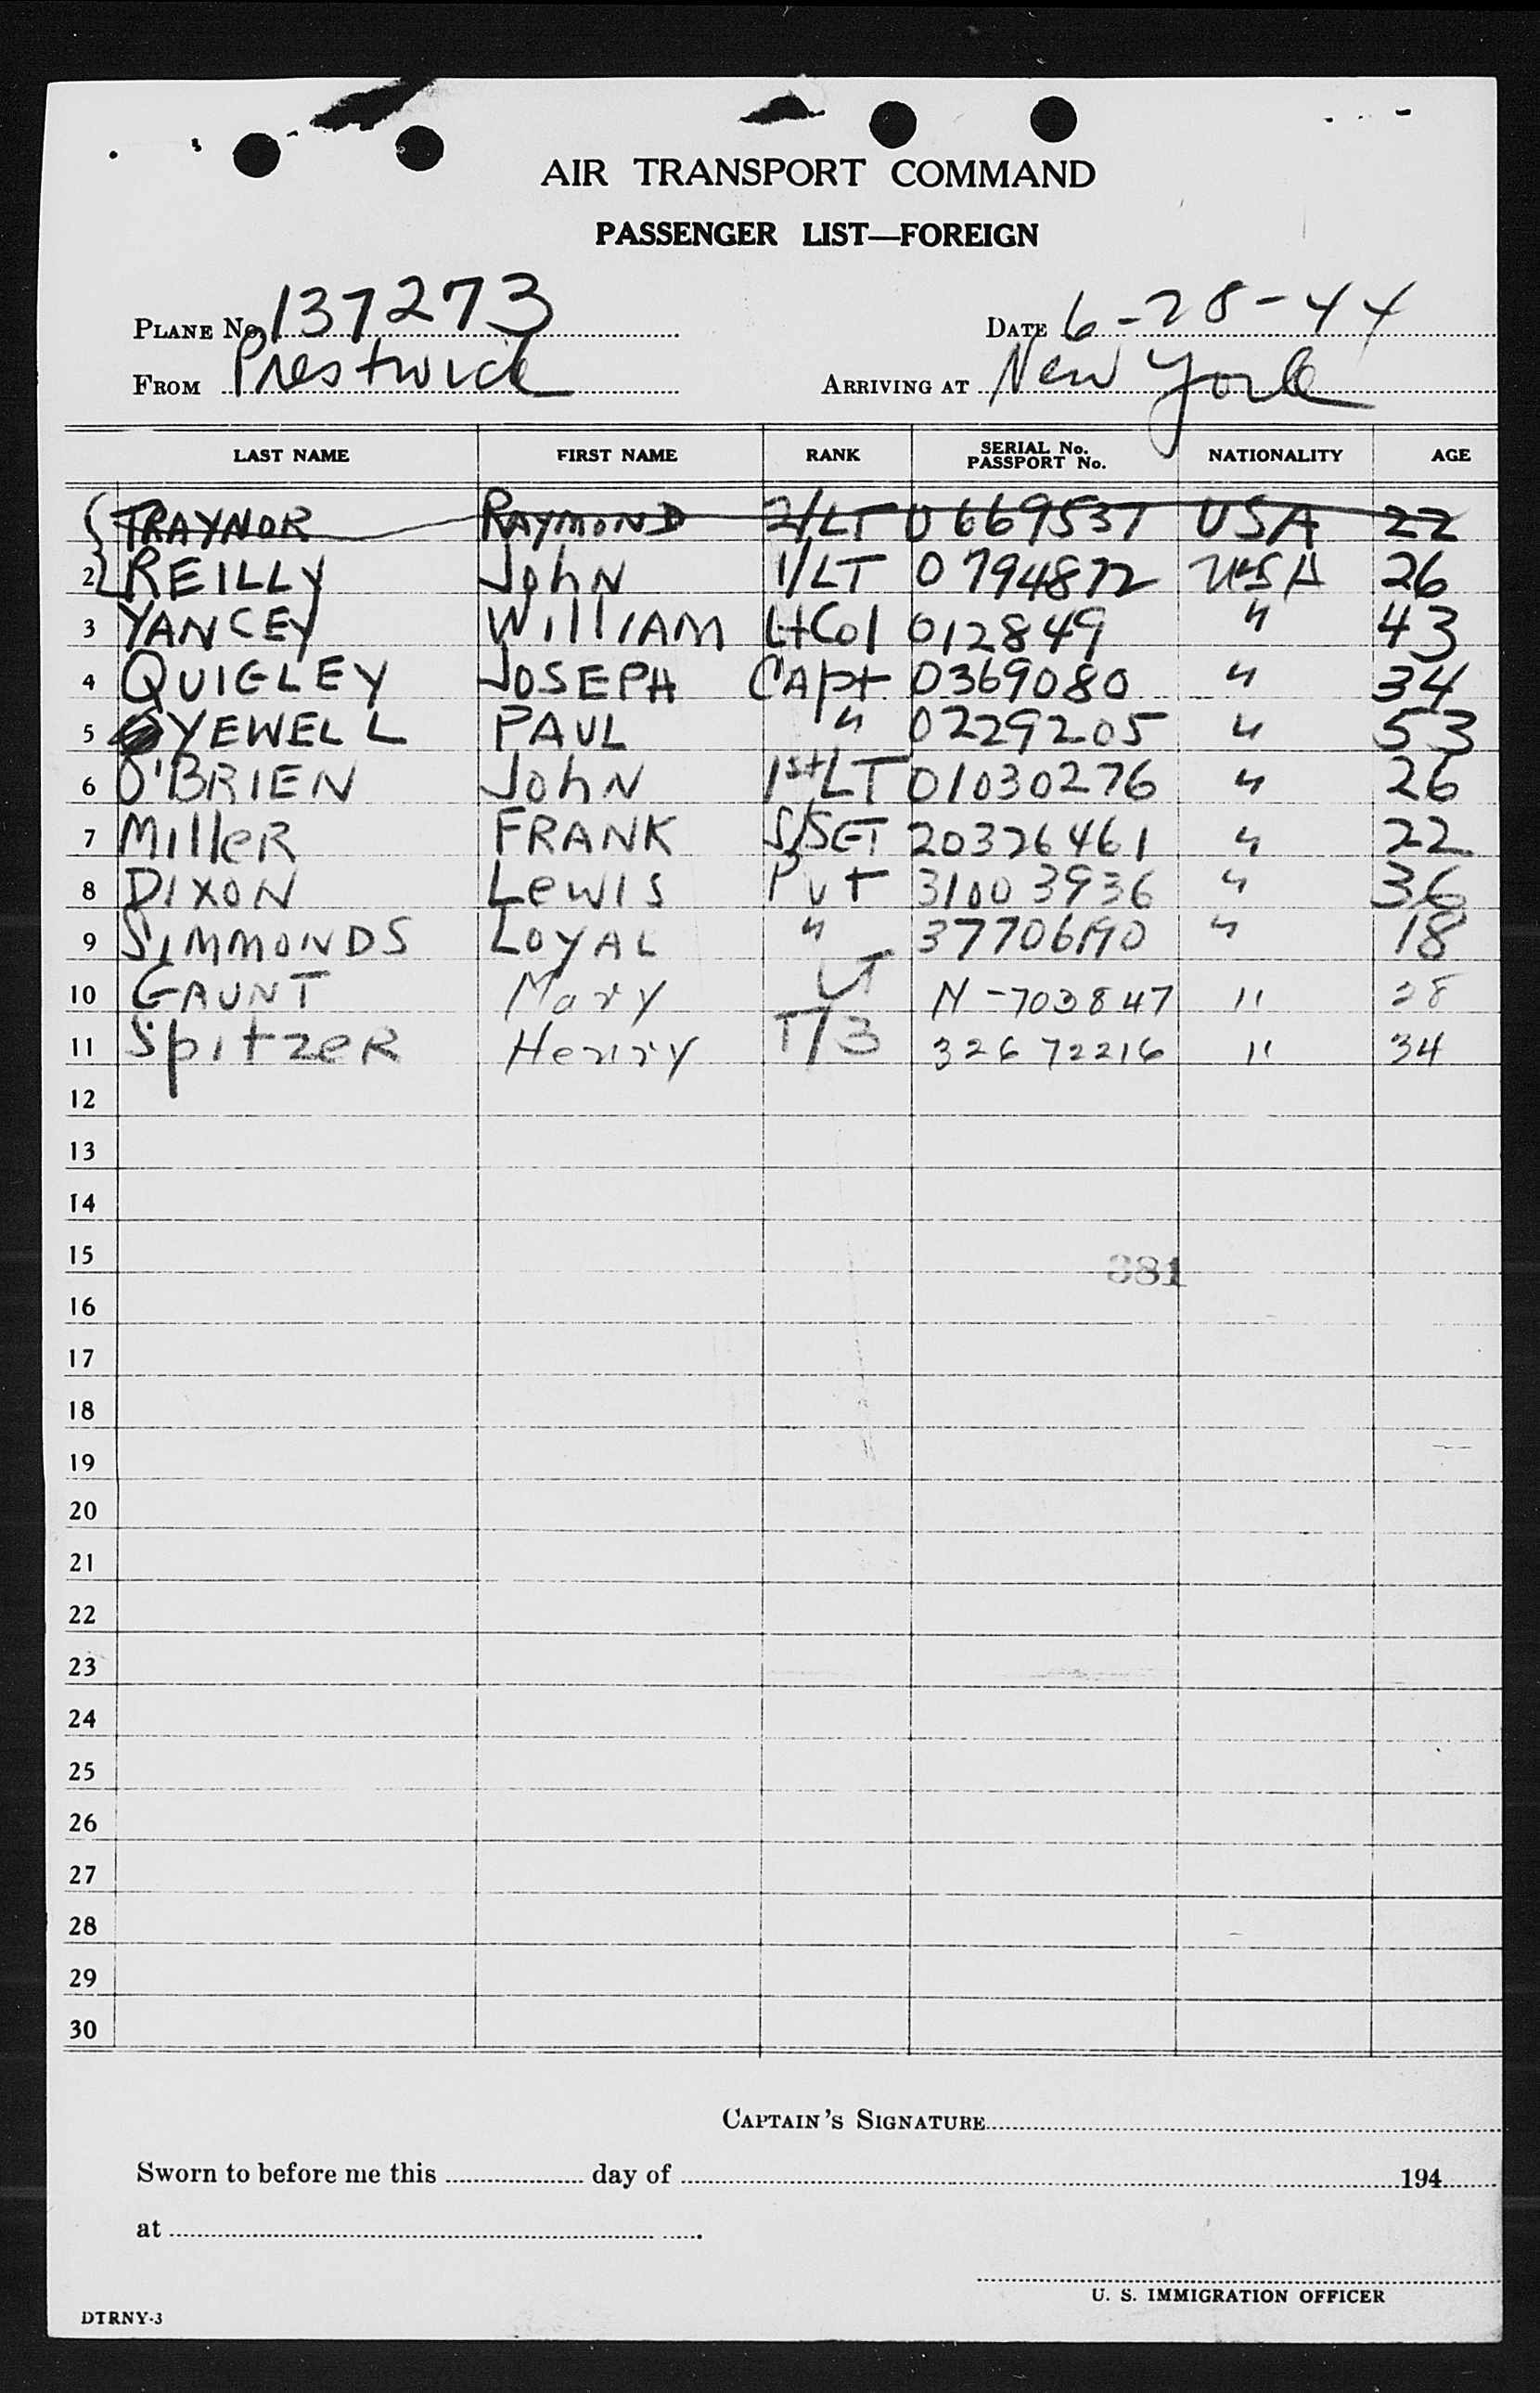 AIR TRANSPORT COMMAND
PASSENGER LIST—FOREIGN
PLANE No. 137273 DATE 6-28-44
FROM Prestwick ARRIVING AT New York
LAST NAME FIRST NAME RANK SERIAL No. PASSPORT No. NATIONALITY AGE
TRAYNOR RAYMOND 2/LT 0669537 USA 22
2 REILLY JohN 1/LT 0794872 USA 26
3 YANCEY WillIAM LtCol 012849 " 43
4 QUIGLEY JOSEPH CAPt 0369080 " 34
5 YEWELL PAUL " 02229205 " 53
6 O'BRIEN JohN 1stLT 01030276 " 26
7 MilleR FRANK S/SGT 20326461 " 22
8 DIXON LeWIS Pvt 31003936 " 36
9 SIMMONDS LOYAL " 37706190 " 18
10 GAUNT Mary LT N-703847 " 28
11 SpitzeR Henry T/3 32672216 " 34
12
13
14
15
381
16
17
18
19
20
21
22
23
24
25
26
27
28
29
30
CAPTAIN'S SIGNATURE
Sworn to before me this day of 194
at
U. S. IMMIGRATION OFFICER
DTRNY-3